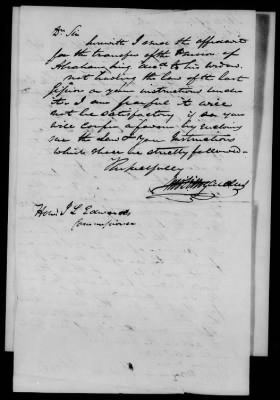 Dr Sir
herewith I send the affidavit
for the transfer of the Pension of
Abraham King decd to his widow.
not having the law of the last
session or your instructions under
it. I am fearful it will
not be satisfactory if so you
will confer a favor by inclosing
me the law & your Instructions
which shall be strictly followed
Respectfully
Hon. J L Edwards
Commissioner